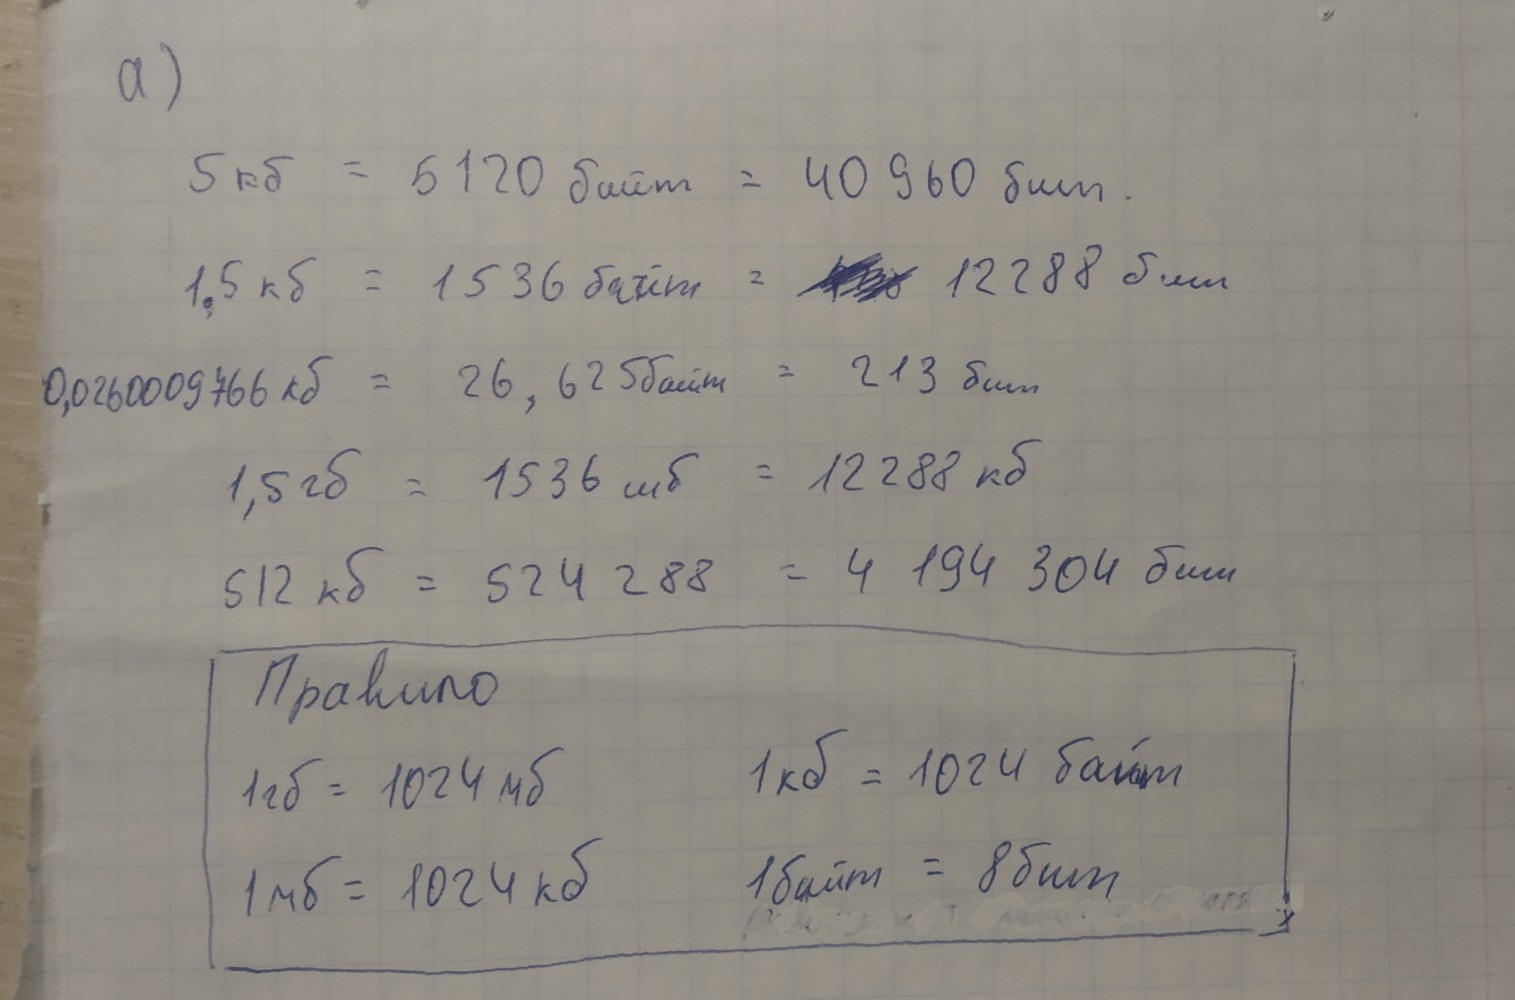 а)
5 кб = 5120 байт = 40 960 бит.
1,5 кб = 1536 байт = 12288 бит
0,0260009766 кб = 26,625 байт = 213 бит
1,5 гб = 1536 мб = 12288 кб
512 кб = 524 288 = 4 194 304 бит
Правило
1 гб = 1024 мб 1 кб = 1024 байт
1 мб = 1024 кб 1 байт = 8 бит